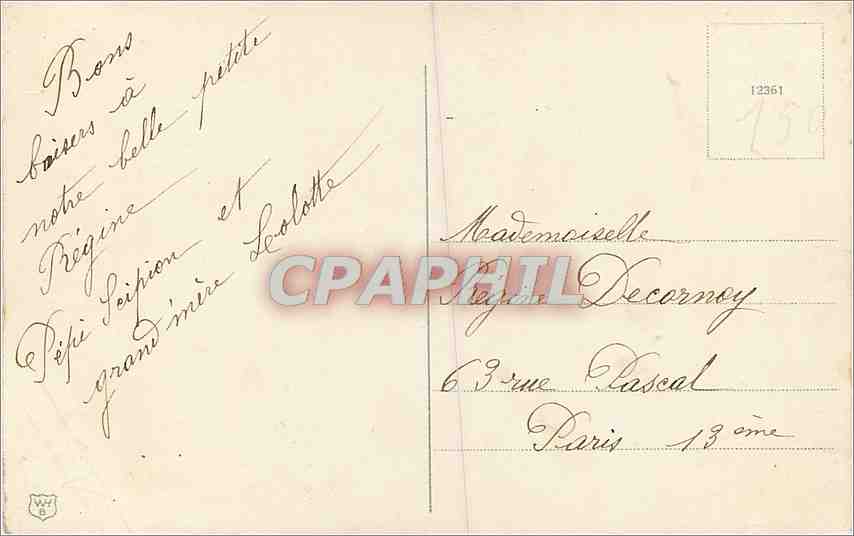 Bons
baisers à
notre belle petite
Régine
Pépé Scipion et
grand'mère Lolotte
12361
150
Mademoiselle
Régine Decornoy
63 rue Pascal
Paris 13ème
CPAPHIL